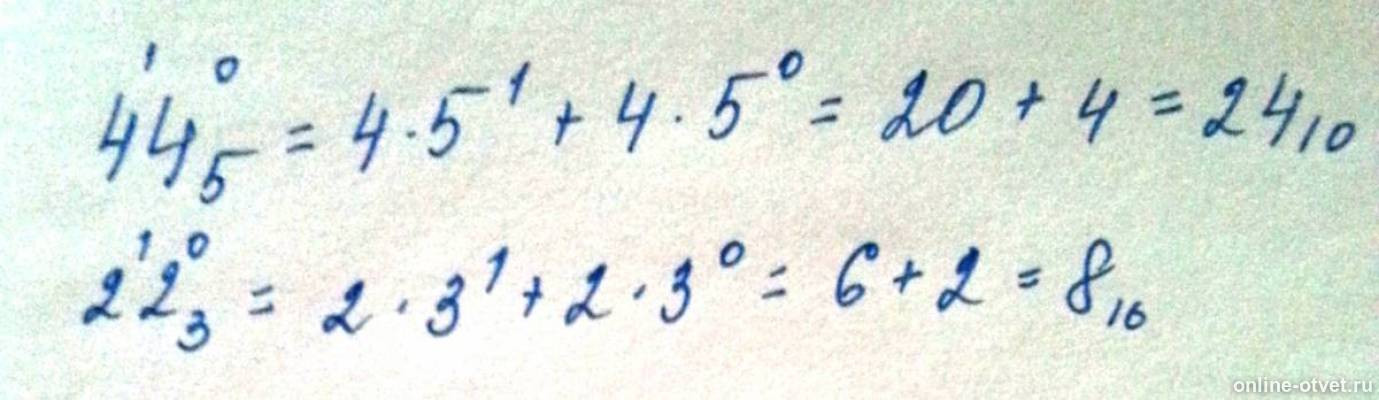 4¹4⁰₅ = 4·5¹ + 4·5⁰ = 20 + 4 = 24₁₀
2¹2⁰₃ = 2·3¹ + 2·3⁰ = 6 + 2 = 8₁₀
online-otvet.ru